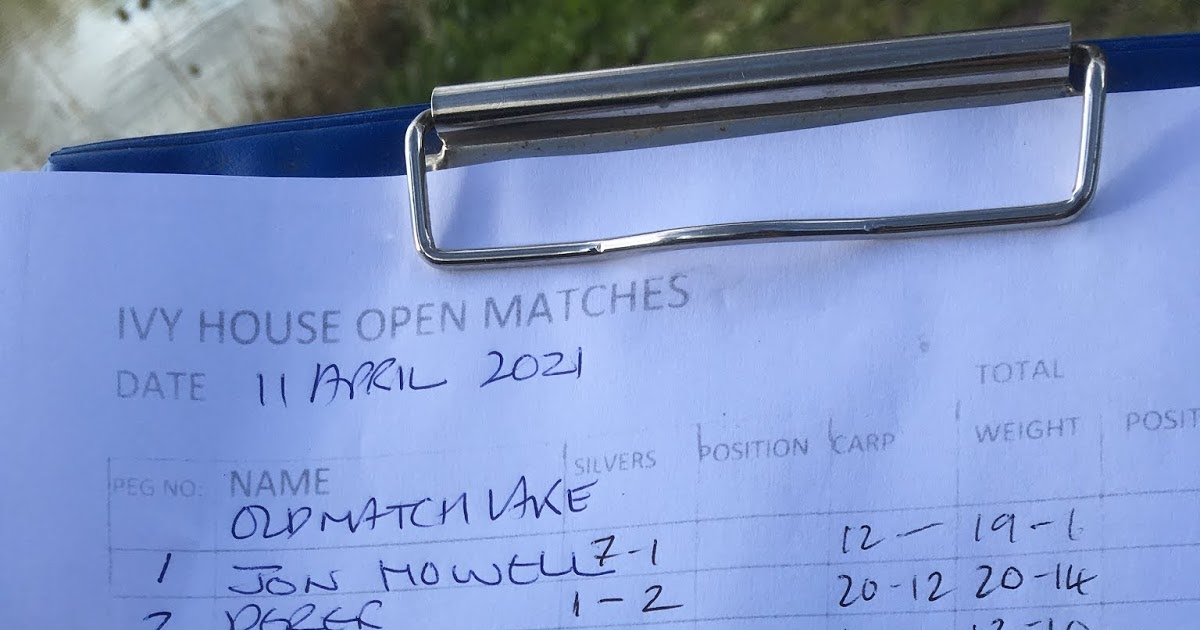 IVY HOUSE OPEN MATCHES
DATE 11 APRIL 2021
TOTAL
PEG NO: NAME SILVERS POSITION CARP WEIGHT POSIT
OLD MATCH LAKE
1 JON HOWELL 7-1 12 — 19-1
2 1-2 20-12 20-14